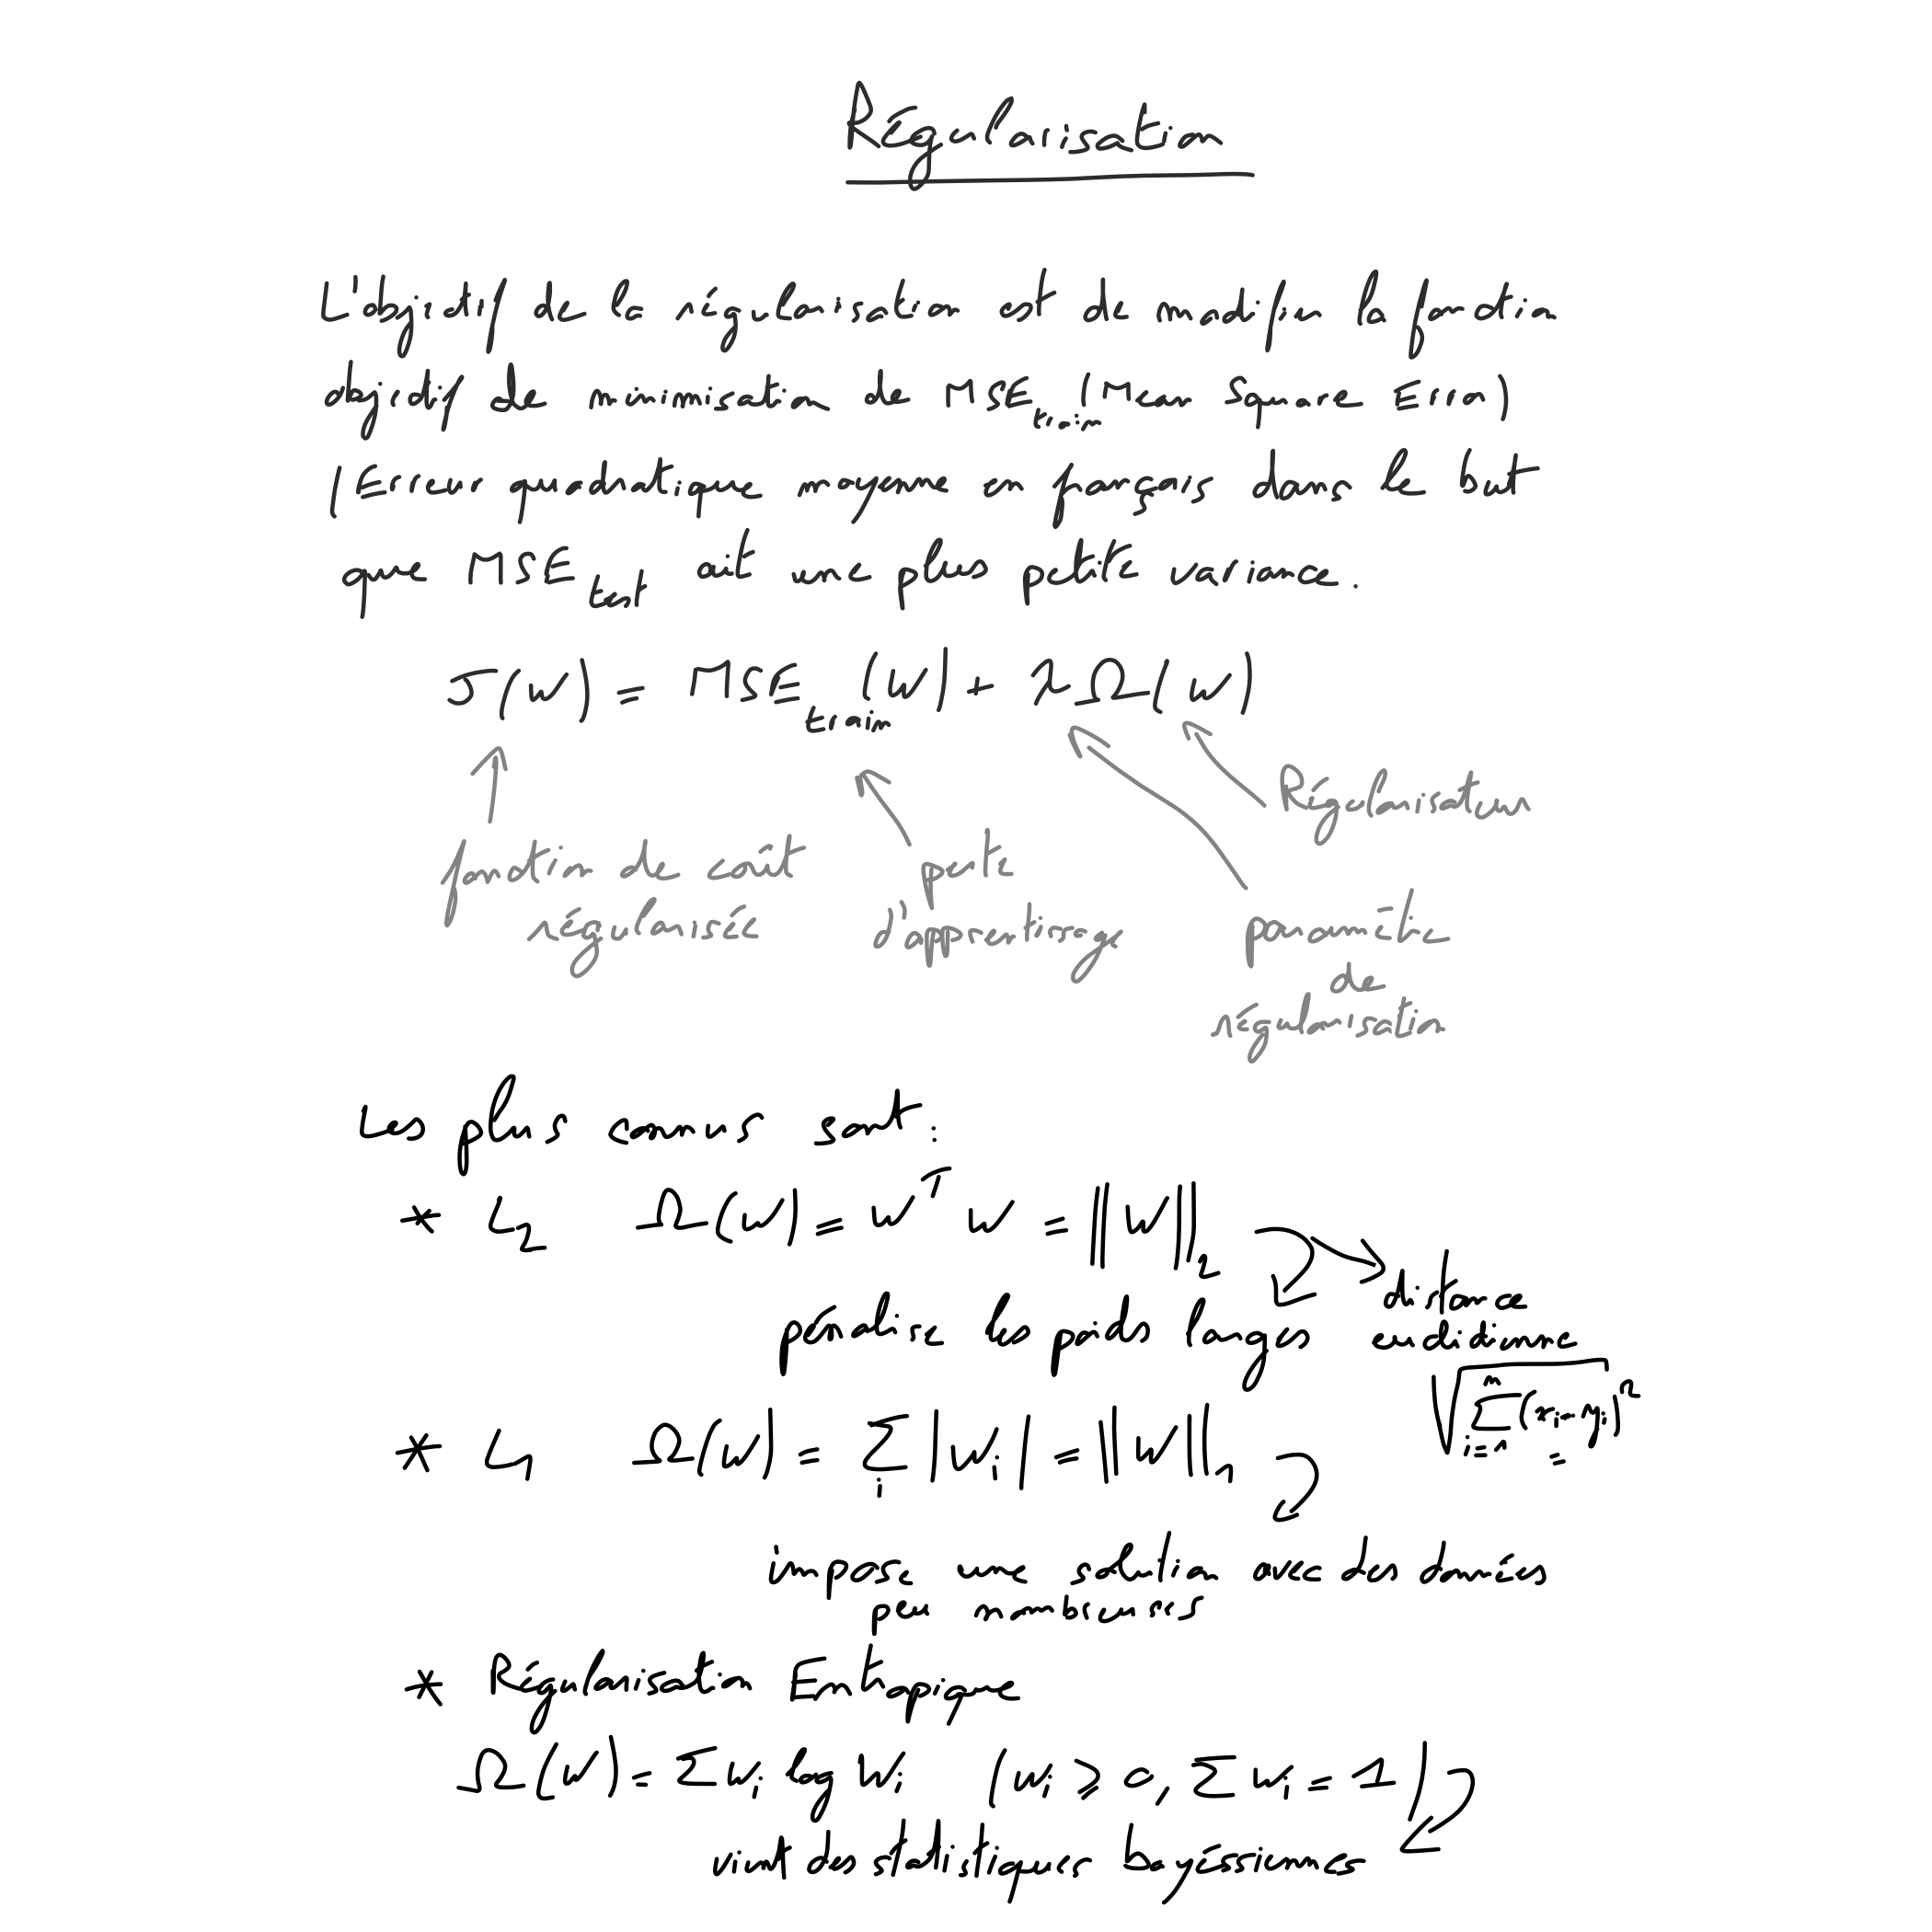 Régularisation
L'objectif de la régularisation est de modifier la fonction
objectif de minimisation de MSE_train (Mean Square Error)
(Erreur quadratique moyenne en français dans le but
que MSE_test ait une plus petite variance.
J(w) = MSE_train (w) + λΩ(w)
Régularisateur
fonction de coût
régularisée
perte
d'apprentissage
paramètre
de
régularisation
Les plus connus sont :
* L₂ Ω(w) = wᵀw = ||w||₂
distance
pénalise les poids larges
euclidienne
√∑ⁿᵢ₌₁(xᵢ-yᵢ)²
* L₁ Ω(w) = ∑ᵢ |wᵢ| = ||w||₁
impose une solution avec des données
peu nombreuses
* Régularisation Entropique
Ω(w) = Σ wᵢ log wᵢ (wᵢ ≥ 0, Σ wᵢ = 1)
vient des statistiques bayésiennes